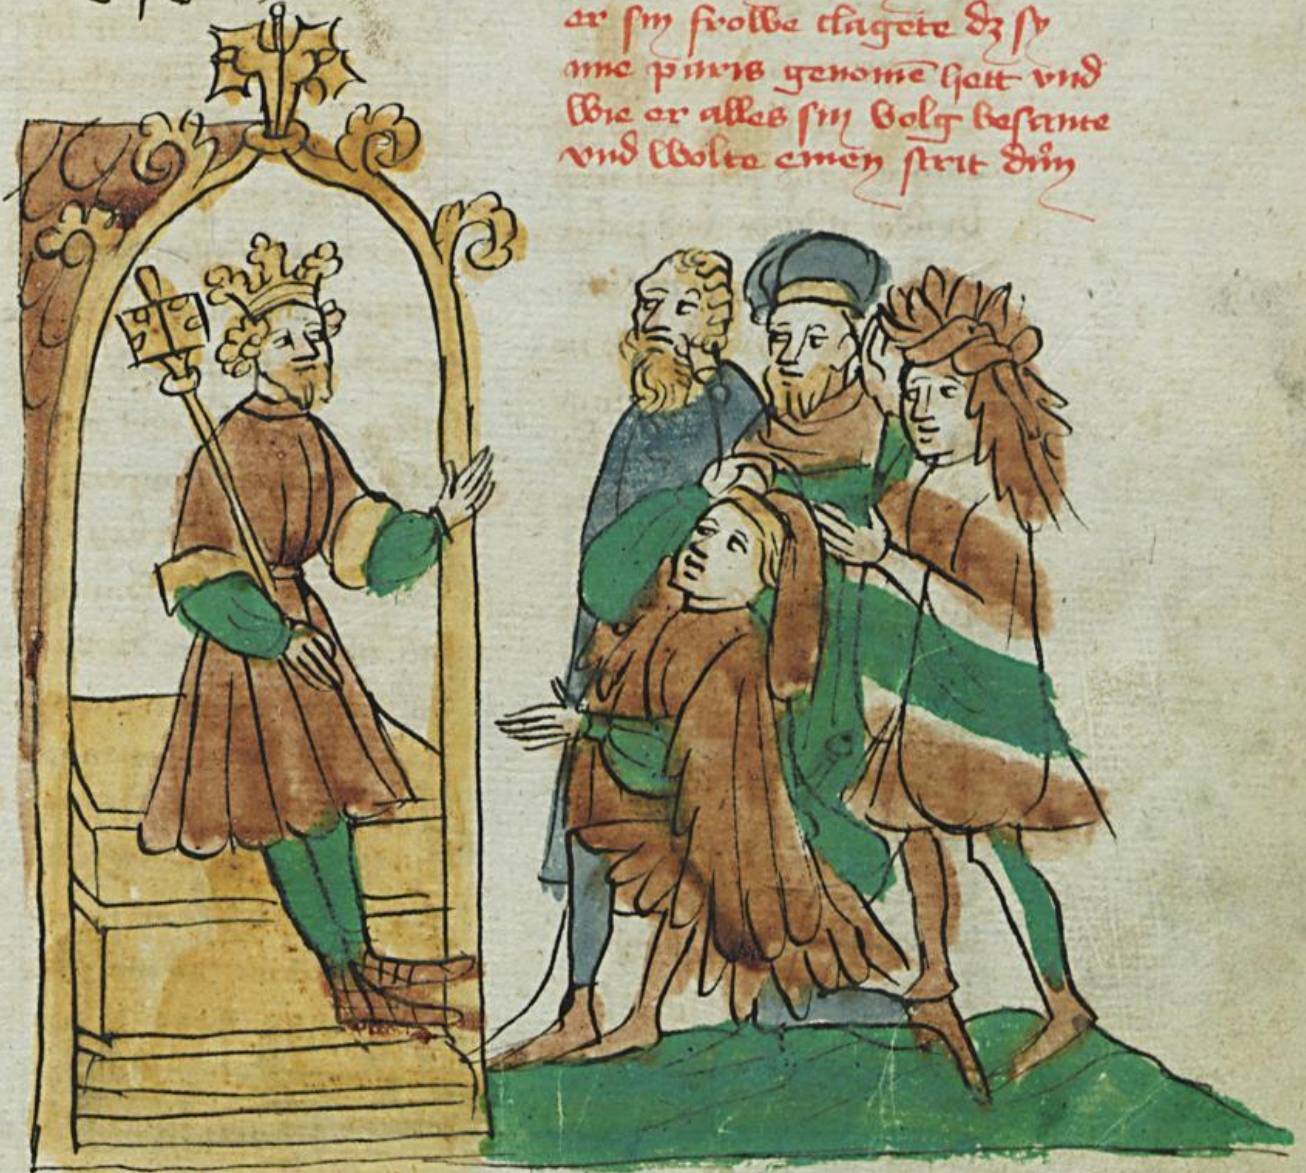 er sin frowe clagete dz sy
ime păris genomē hett vnd
wie er alles sin volg besante
vnd wolte einen strit důn